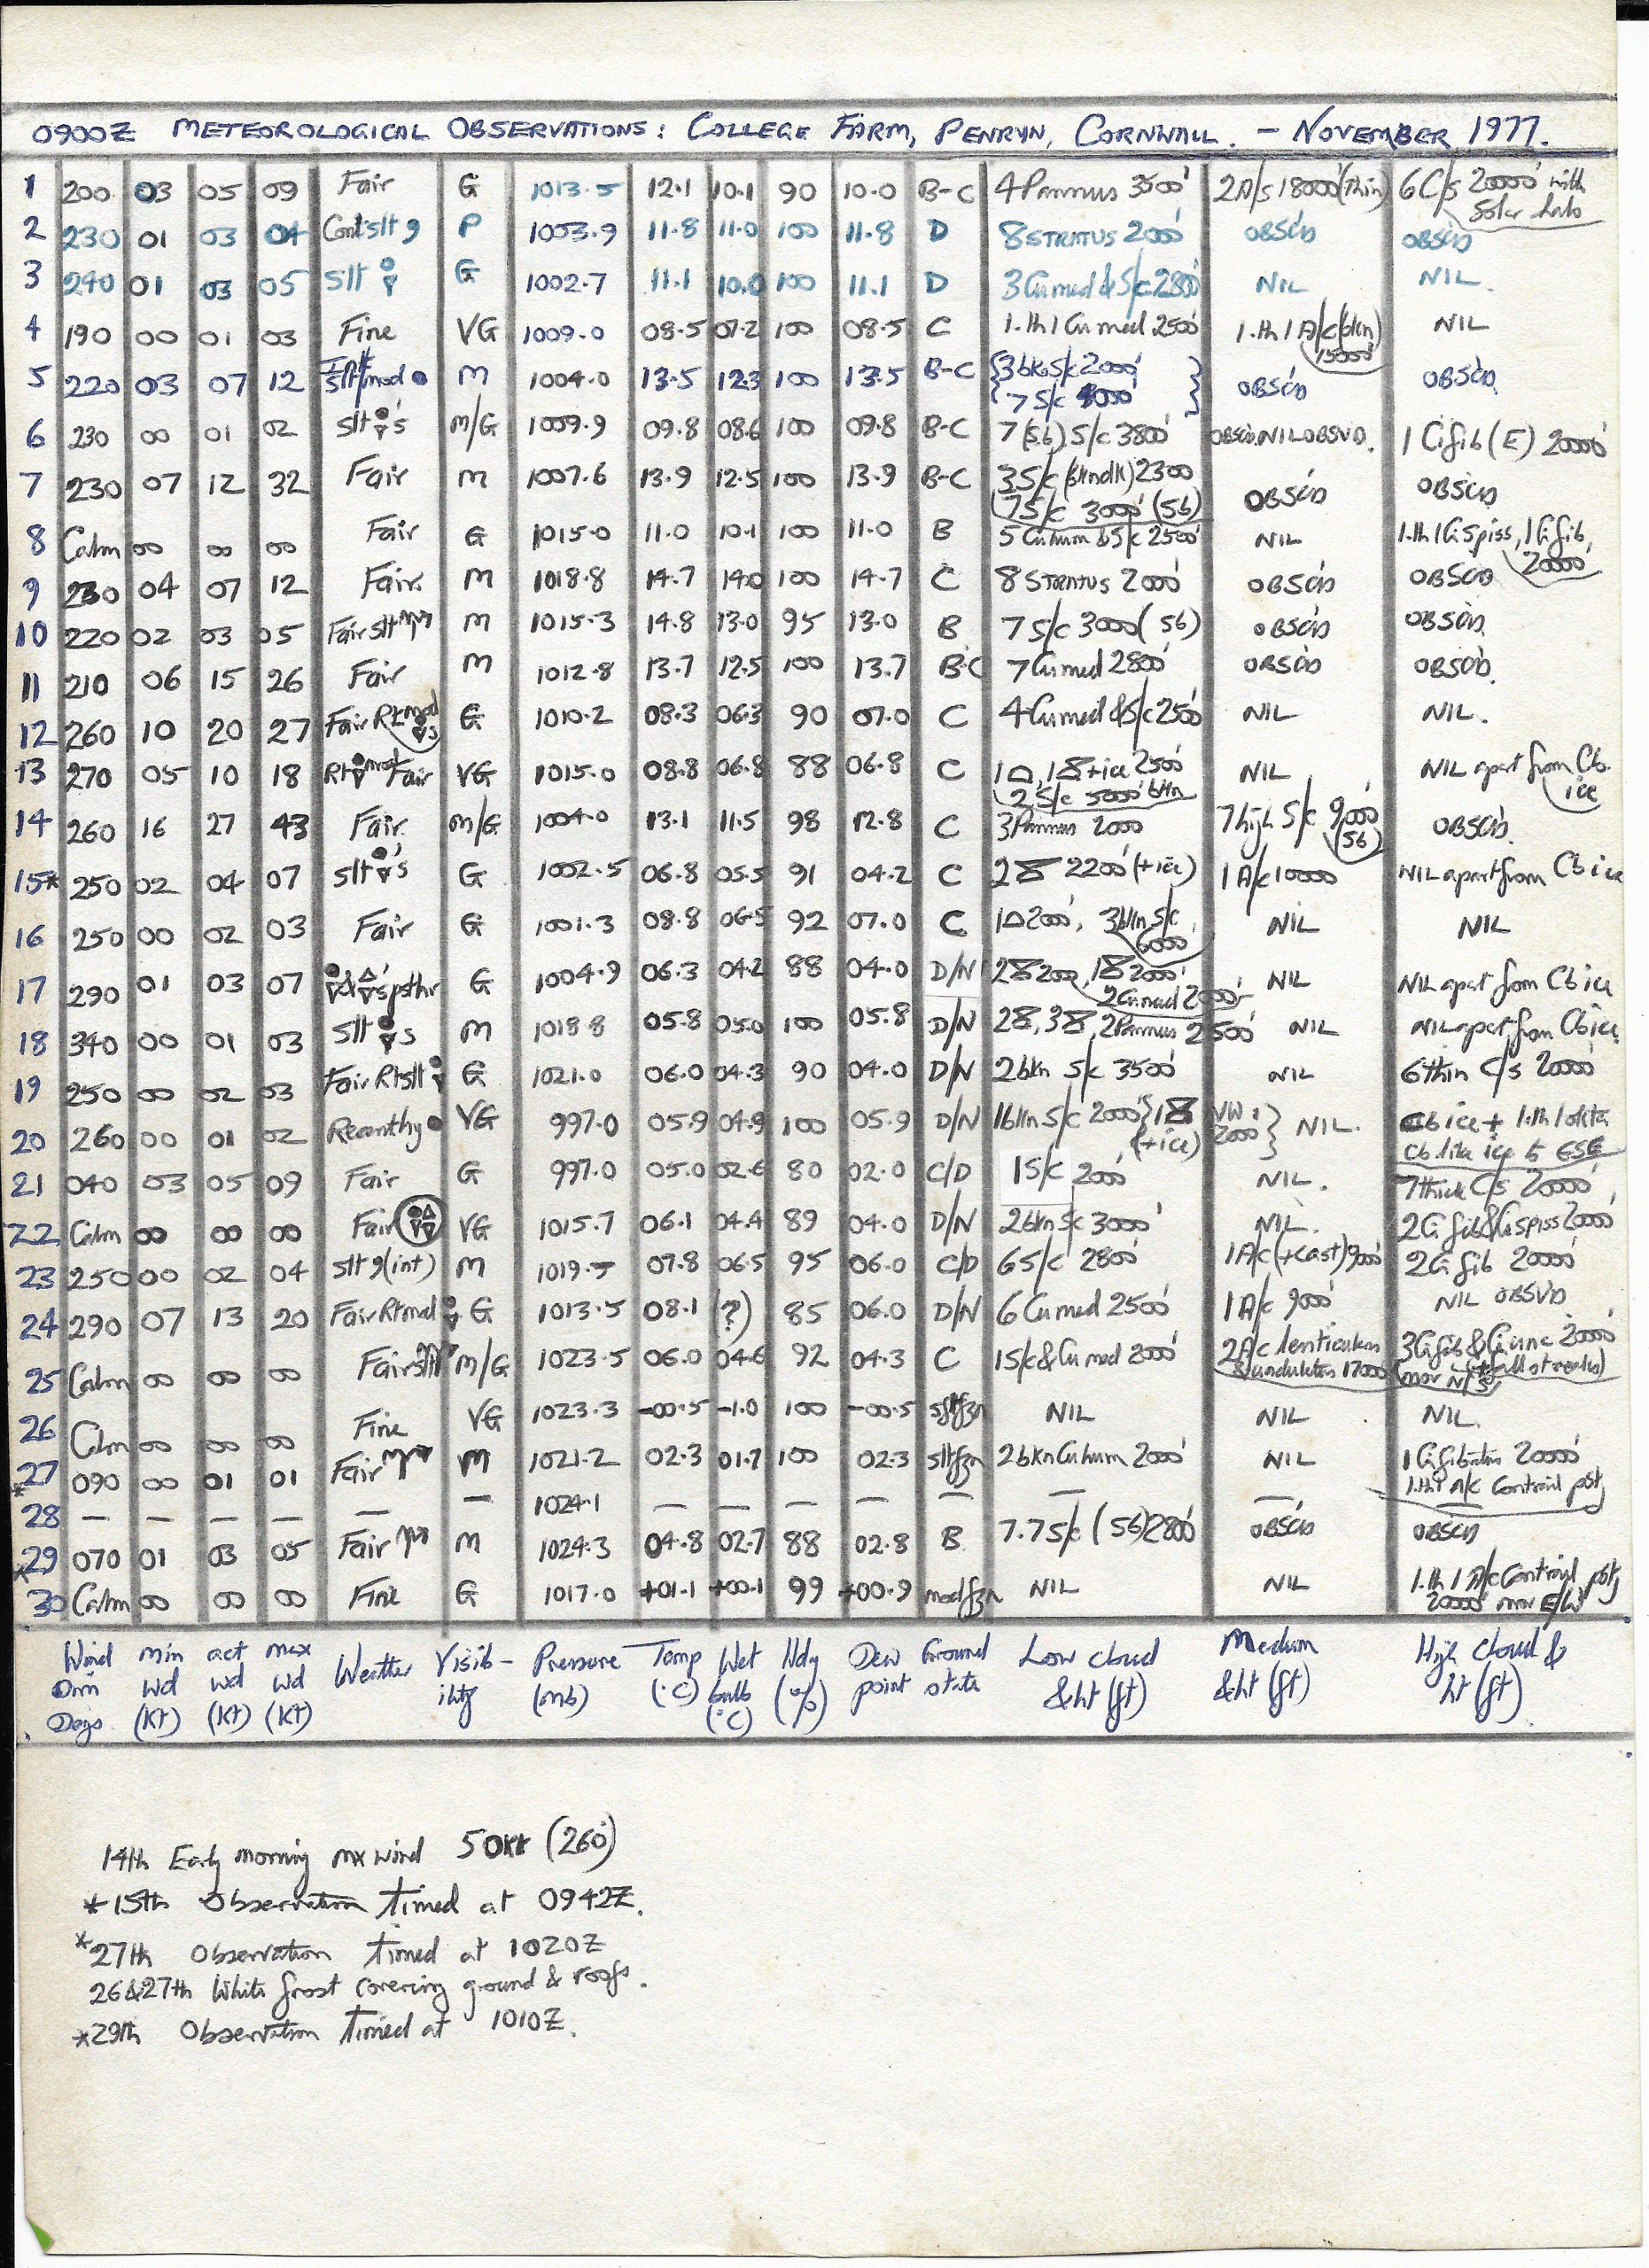 0900Z METEOROLOGICAL OBSERVATIONS: COLLEGE FARM, PENRYN, CORNWALL. - NOVEMBER 1977.
1 200 03 05 09 Fair G 1013.5 12.1 10.1 90 10.0 B-C 4 Pannus 3500' 2 A/s 18000' (thin) 6 C/s 20000' with solar halo
2 230 01 03 04 Cont slt 9 P 1003.9 11.8 11.0 100 11.8 D 8 STRATUS 2000' OBSC'D OBSC'D
3 240 01 03 05 Slt G 1002.7 11.1 10.0 100 11.1 D 3 Cu med & S/c 2800' NIL NIL.
4 190 00 01 03 Fine VG 1009.0 08.5 07.2 100 08.5 C 1.th 1 Cu med 2500' 1.th 1 A/c (bkn) 15000' NIL
5 220 03 07 12 slt/mod M 1004.0 13.5 12.3 100 13.5 B-C {3 bkn S/c 2000' 7 S/c 4000'} OBSC'D OBSC'D
6 230 00 01 02 Slt 's M/G 1009.9 09.8 08.6 100 09.8 B-C 7 (56) S/c 3800' OBSC'D. NIL OBSVD. 1 Ci fib (E) 20000'
7 230 07 12 32 Fair M 1007.6 13.9 12.5 100 13.9 B-C 3 S/c 2300 7 S/c 3000' (56) OBSC'D OBSC'D
8 Calm 00 00 00 Fair G 1015.0 11.0 10.1 100 11.0 B 5 Cu hum & S/c 2500' NIL 1.th 1 Ci spiss, 1 Ci fib, 20000'
9 230 04 07 12 Fair M 1018.8 14.7 14.0 100 14.7 C 8 STRATUS 2000' OBSC'D OBSC'D
10 220 02 03 05 Fair slt M 1015.3 14.8 13.0 95 13.0 B 7 S/c 3000' (56) OBSC'D OBSC'D
11 210 06 15 26 Fair M 1012.8 13.7 12.5 100 13.7 B-C 7 Cu med 2800' OBSC'D OBSC'D.
12 260 10 20 27 Fair Rt mod s G 1010.2 08.3 06.3 90 07.0 C 4 Cu med & S/c 2500' NIL NIL.
13 270 05 10 18 Rt mod Fair VG 1015.0 08.8 06.8 88 06.8 C 1, 1 + ice 2500' 2 S/c 5000' bkn NIL NIL apart from Cb. ice
14 260 16 27 43 Fair M/G 1004.0 13.1 11.5 98 12.8 C 3 Pannus 2000 7 high S/c 9000' (56) OBSC'D.
15* 250 02 04 07 slt 's G 1002.5 06.8 05.5 91 04.2 C 2 2200' (+ice) 1 A/c 10000 NIL apart from Cb ice
16 250 00 02 03 Fair G 1001.3 08.8 06.5 92 07.0 C 1 2000', 3 bkn S/c 6000' NIL NIL
17 290 01 03 07 's psthr G 1004.9 06.3 04.2 88 04.0 D/N 2 2000, 1 2000' 2 Cu med 2000' NIL NIL apart from Cb ice
18 340 00 01 03 Slt s M 1018.8 05.8 05.0 100 05.8 D/N 2, 3, 2 Pannus 2500' NIL NIL apart from Cb ice.
19 250 00 02 03 Fair Rt slt G 1021.0 06.0 04.3 90 04.0 D/N 2 bkn S/c 3500' NIL 6 thin C/s 20000'
20 260 00 01 02 Recnthy VG 997.0 05.9 04.9 100 05.9 D/N 1 bkn S/c 2000' {1 (+ice) NW. 2000'} NIL. Cb ice + 1.th 1 okta Cb like ice to ESE
21 040 03 05 09 Fair G 997.0 05.0 02.6 80 02.0 C/D 1 S/c 2000' NIL. 7 thick C/s 20000'
22 Calm 00 00 00 Fair VG 1015.7 06.1 04.4 89 04.0 D/N 2 bkn S/c 3000' NIL. 2 Ci fib & Ci spiss 20000'
23 250 00 02 04 slt 9 (int) M 1019.5 07.8 06.5 95 06.0 C/D 6 S/c 2800' 1 A/c (+cast) 9000' 2 Ci fib 20000'
24 290 07 13 20 Fair Rt mod G 1013.5 08.1 (?) 85 06.0 D/N 6 Cu med 2500' 1 A/c 9000' NIL OBSVD
25 Calm 00 00 00 Fair slt M/G 1023.5 06.0 04.6 92 04.3 C 1 S/c & Cu med 2000' 2 A/c lenticularis & undulatus 17000' 3 Ci fib & Ci unc 20000'
26 Calm 00 00 00 Fine VG 1023.3 -00.5 -1.0 100 -00.5 slt fzn NIL NIL NIL.
*27 090 00 01 01 Fair M 1021.2 02.3 01.7 100 02.3 slt fzn 2 bkn Cu hum 2000' NIL 1 Ci fibratus 20000' 1.th 1 A/c Contrail pstg
28 — — — — — — 1024.1 — — — — — — —
*29 070 01 03 05 Fair M 1024.3 04.8 02.7 88 02.8 B 7.7 S/c (56) 2800' OBSC'D OBSC'D
30 Calm 00 00 00 Fine G 1017.0 +01.1 +00.1 99 +00.9 mod fzn NIL NIL 1.th 1 A/c Contrail pstg 20000' mov E/W
Wind Dirn Degs. min wd (Kt) act wd (Kt) max wd (Kt) Weather Visibility Pressure (mb) Temp (°C) Wet bulb (°C) Hdy (%) Dew point Ground state Low cloud & ht (ft) Medium & ht (ft) High cloud & ht (ft)
14th Early morning mx wind 50kt (260°)
*15th Observation timed at 0942Z.
*27th Observation timed at 1020Z
26&27th White frost covering ground & roofs.
*29th Observation timed at 1010Z.